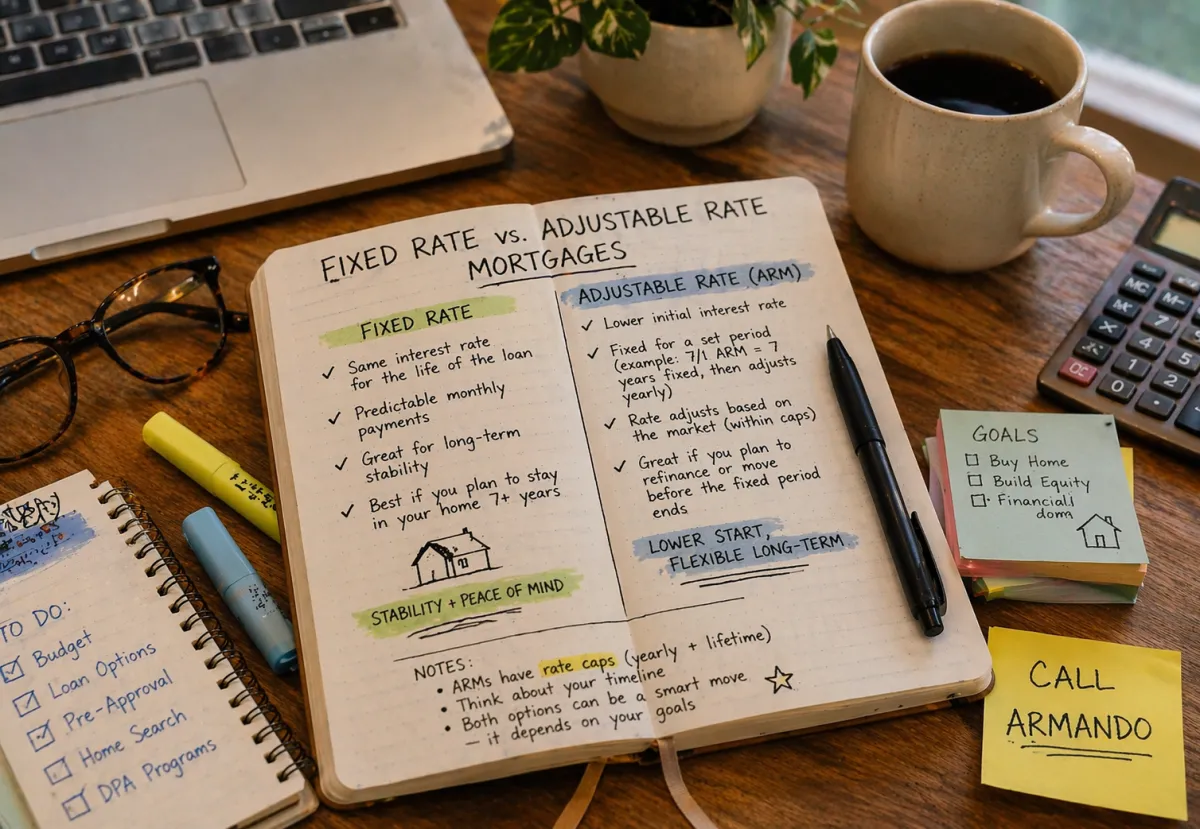 FIXED RATE vs. ADJUSTABLE RATE
MORTGAGES
FIXED RATE
✓ Same interest rate
for the life of the loan
✓ Predictable monthly
payments
✓ Great for long-term
stability
✓ Best if you plan to stay
in your home 7+ years
STABILITY + PEACE OF MIND
ADJUSTABLE RATE (ARM)
✓ Lower initial interest rate
✓ Fixed for a set period
(example: 7/1 ARM = 7
years fixed, then adjusts
yearly)
✓ Rate adjusts based on
the market (within caps)
✓ Great if you plan to
refinance or move
before the fixed period
ends
LOWER START,
FLEXIBLE LONG-TERM
NOTES:
• ARMs have rate caps (yearly + lifetime)
• Think about your timeline
• Both options can be a smart move
— it depends on your goals
TO DO:
☑ Budget
☑ Loan Options
☑ Pre-Approval
☐ Home Search
☐ DPA Programs
GOALS
☐ Buy Home
☐ Build Equity
☐ Financial
dom
CALL
ARMANDO
MC
7
4
5
2
0